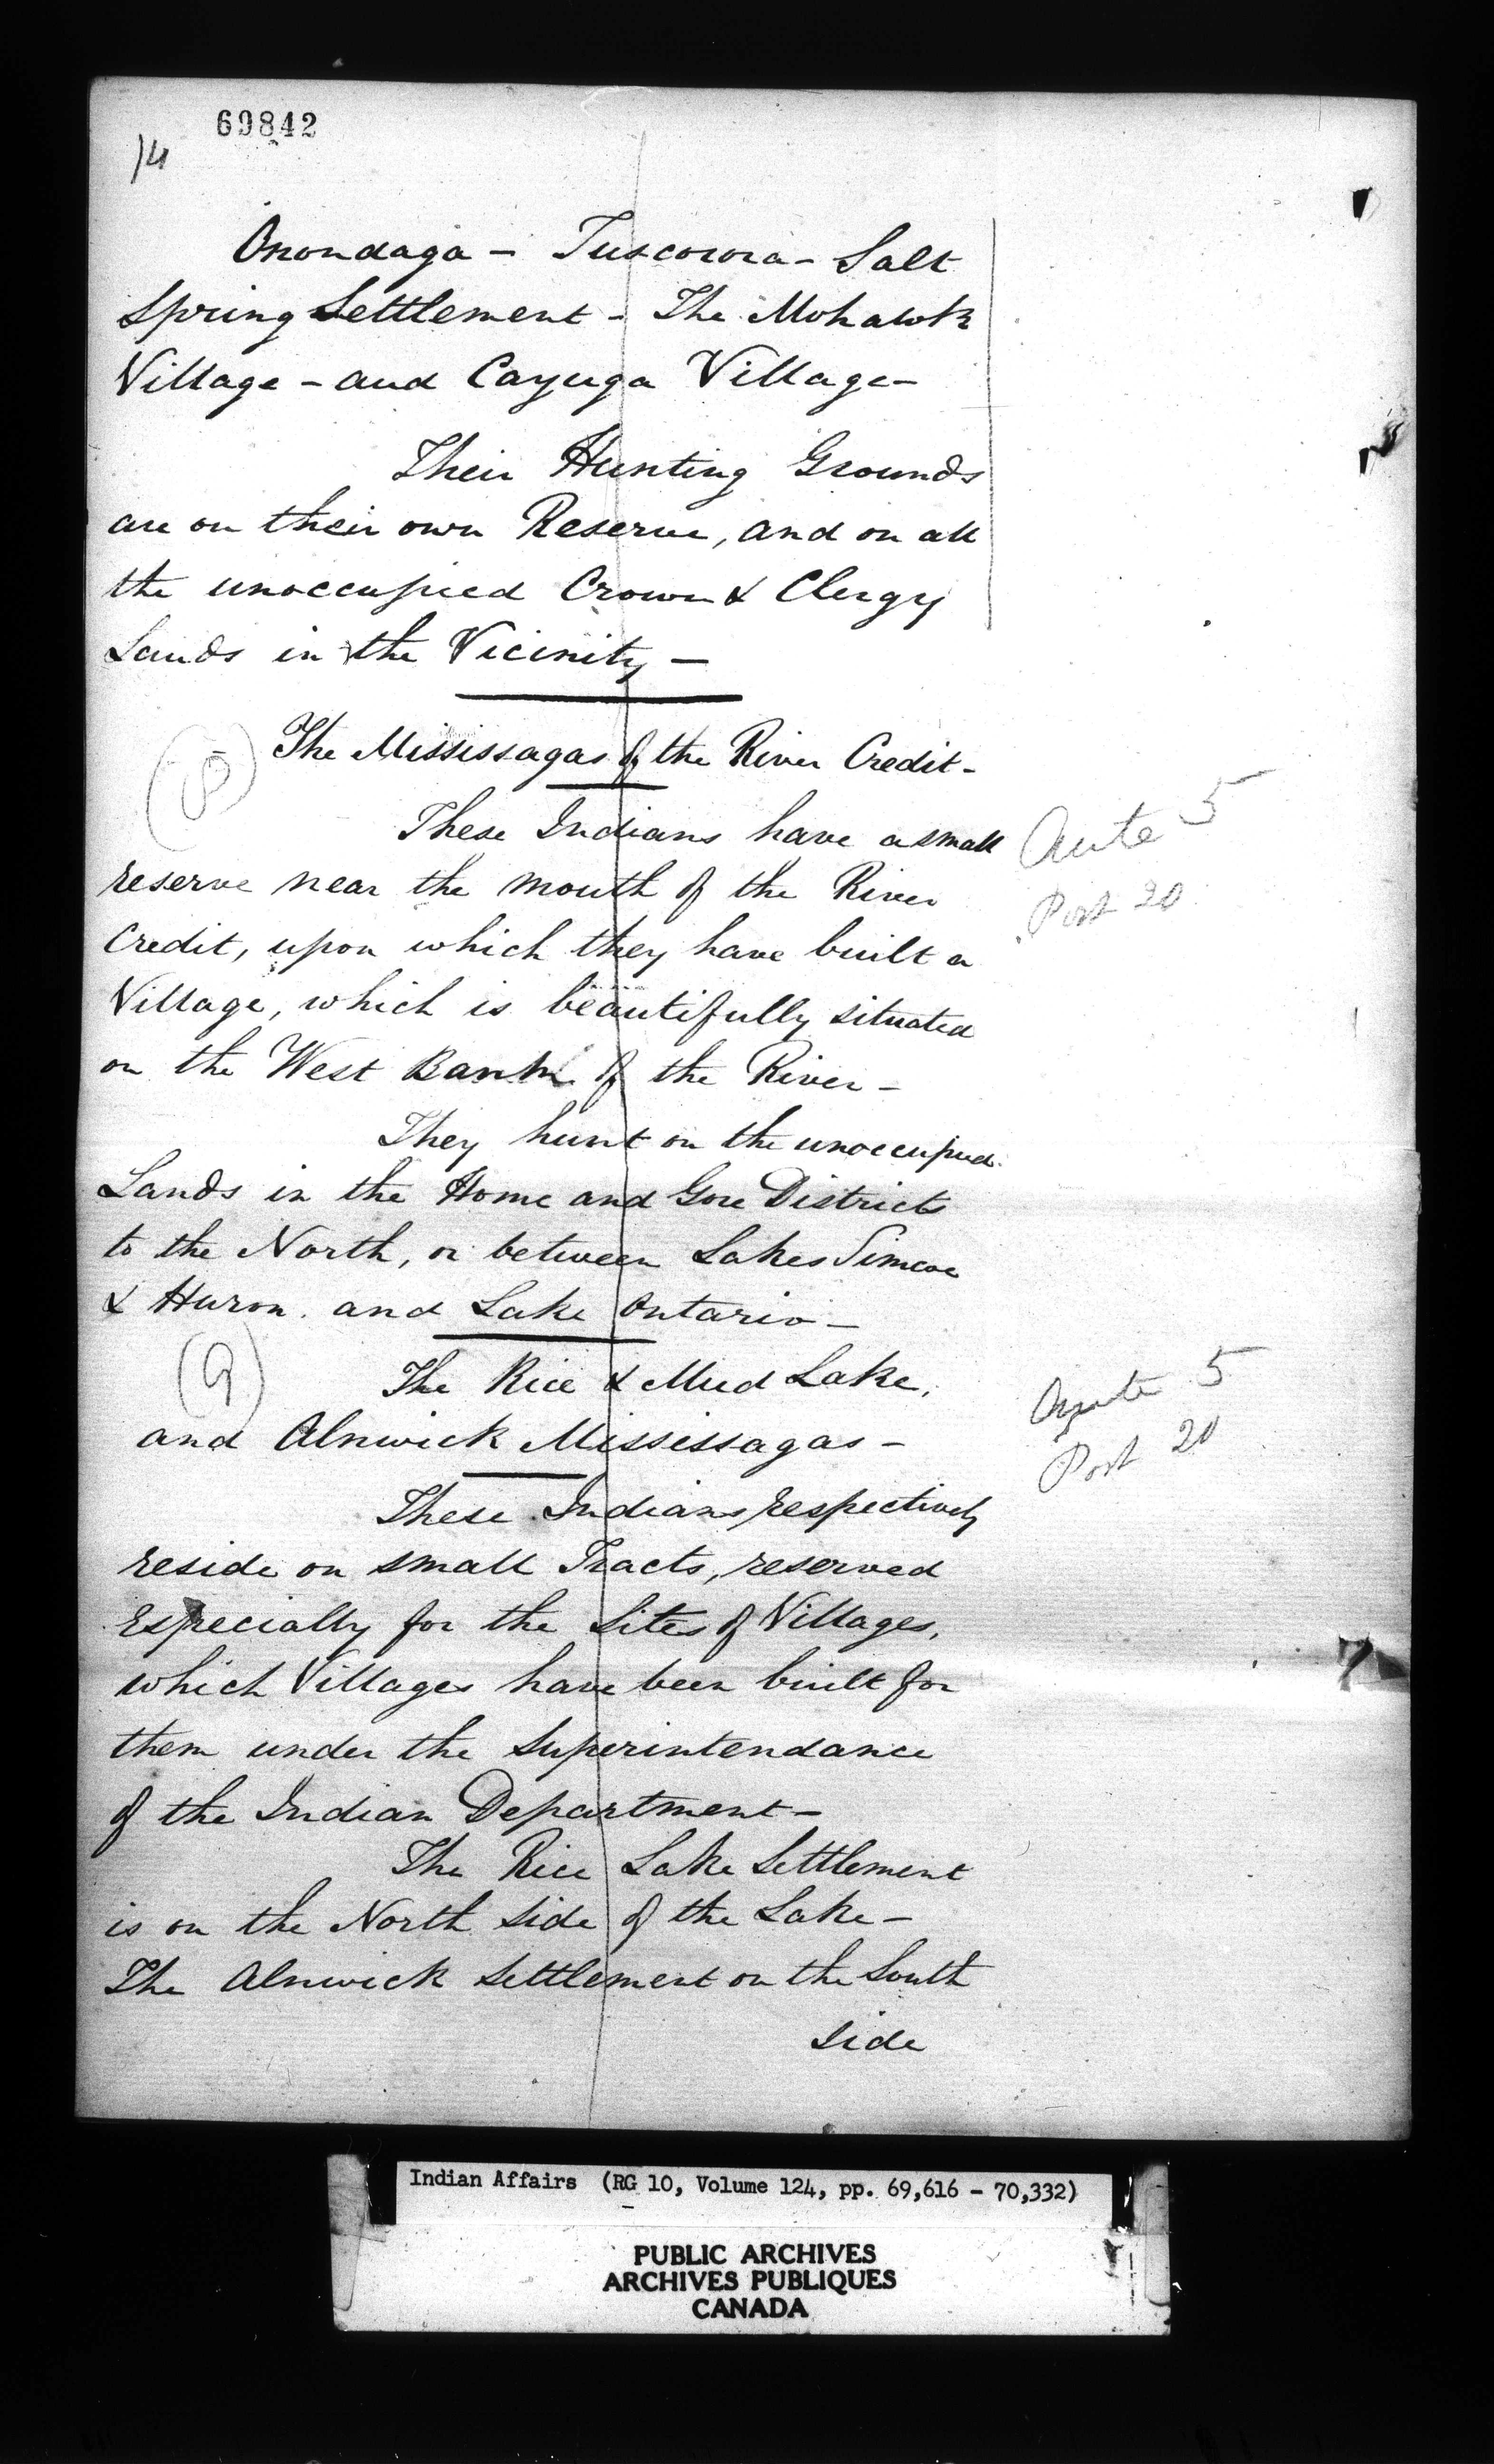 69842
14
Onondaga – Tuscorora – Salt
Spring Settlement – The Mohawk
Village – and Cayuga Village –
Their Hunting Grounds
are on their own Reserve, and on all
the unoccupied Crown & Clergy
Lands in the Vicinity –
(8)
The Mississagas of the River Credit –
These Indians have a small
Ante 5
reserve near the mouth of the River
Post 20
Credit, upon which they have built a
Village, which is beautifully situated
on the West Bank of the River –
They hunt on the unoccupied
Lands in the Home and Gore Districts
to the North, or between Lakes Simcoe
& Huron. and Lake Ontario –
(9)
The Rice & Mud Lake,
Ante 5
and Alnwick Mississagas –
Post 20
These Indians respectively
reside on small Tracts, reserved
especially for the sites of Villages,
which Villages have been built for
them under the Superintendance
of the Indian Department –
The Rice Lake Settlement
is on the North side of the Lake –
The Alnwick Settlement on the South
side
Indian Affairs (RG 10, Volume 124, pp. 69,616 – 70,332)
PUBLIC ARCHIVES
ARCHIVES PUBLIQUES
CANADA